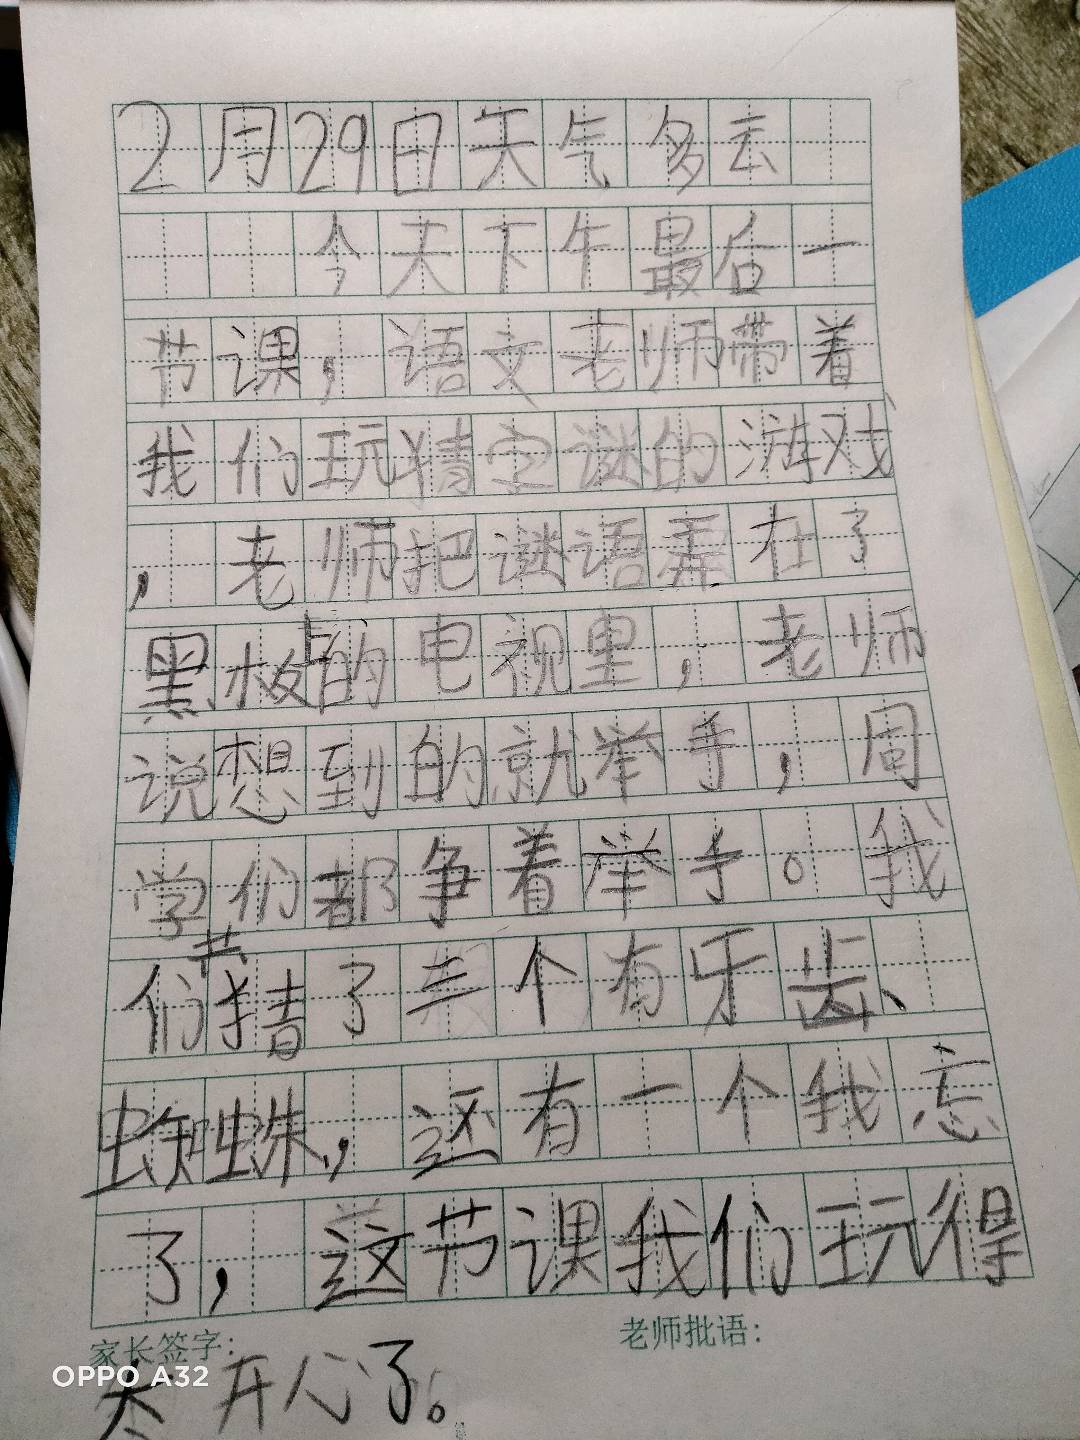 2月29日天气多云
今天下午最后一
节课，语文老师带着
我们玩猜字谜的游戏
，老师把谜语弄在了
黑板上的电视里，老师
说想到的就举手，周
学们都争着举手。我
们共猜了三个有牙齿、
蜘蛛，还有一个我忘
了，这节课我们玩得
家长签字：
老师批语：
太开心了。
OPPO A32